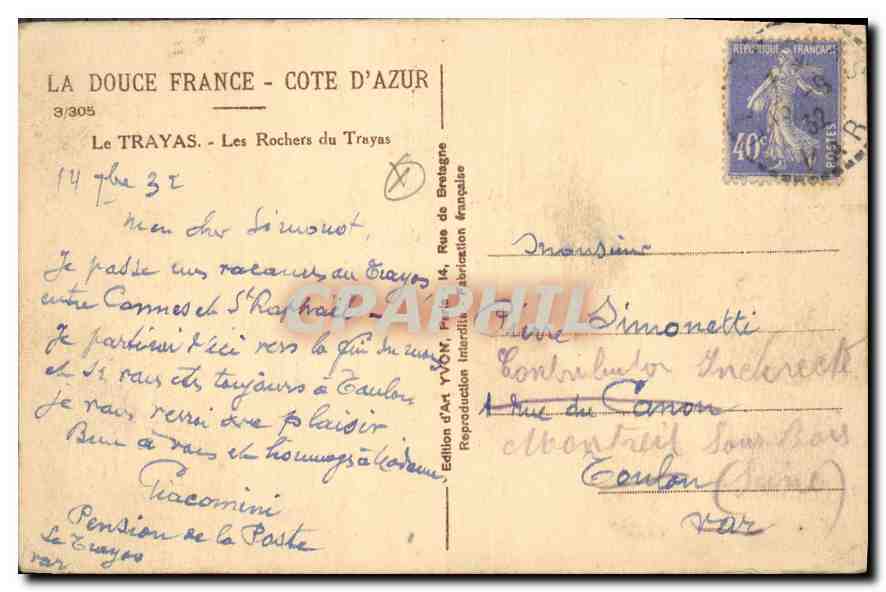 LA DOUCE FRANCE - COTE D'AZUR
3/305
Le TRAYAS. - Les Rochers du Trayas
14 7bre 32
Mon cher Simonot,
Je passe mes vacances au Trayas
entre Cannes et St Raphaël -
Je partirai d'ici vers la fin du mois
et si vous êtes toujours à Toulon
je vous verrai avec plaisir
Bien à vous et hommages à Madame
Giacomini
Pension de la Poste
Le Trayas
Var
Edition d'Art YVON, Paris, 14, Rue de Bretagne
Reproduction Interdite Fabrication française
CPAPHIL
RÉPUBLIQUE FRANÇAISE
40c
POSTES
32
VAR
Monsieur
Pierre Simonetti
Contributions Indirecte
1 Rue du Canon
Montreil Sous Bois
Toulon
(Seine)
Var